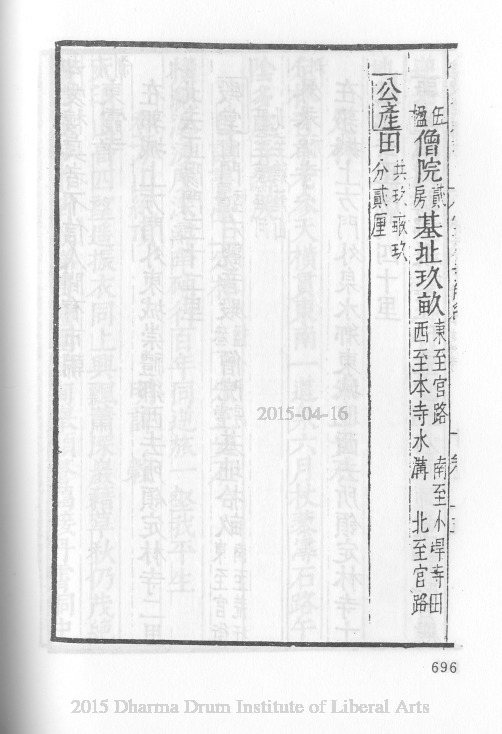 伍楹僧院貳房基址玖畝東至官路 南至小垾寺田西至本寺水溝 北至官路
公產田共玖畝玖分貳厘
2015-04-16
696
2015 Dharma Drum Institute of Liberal Arts